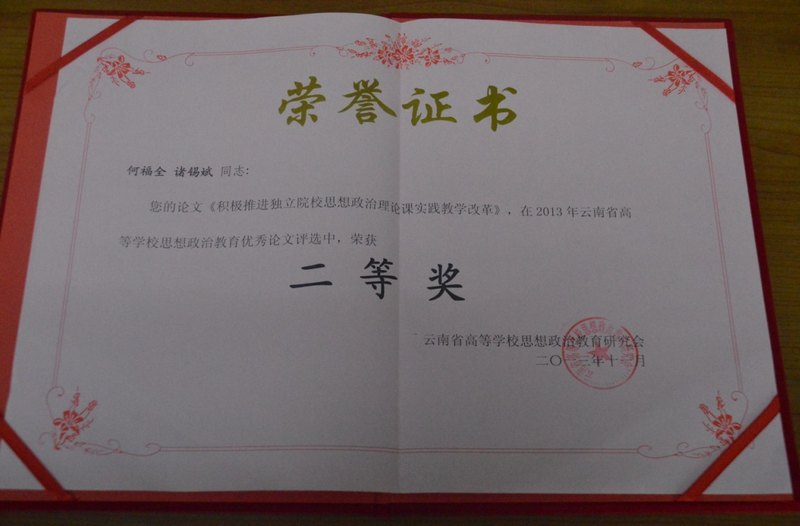 荣誉证书
何福全 诸锡斌 同志:
您的论文《积极推进独立院校思想政治理论课实践教学改革》，在2013年云南省高
等学校思想政治教育优秀论文评选中，荣获
二等奖
云南省高等学校思想政治教育研究会
二〇一三年十 月